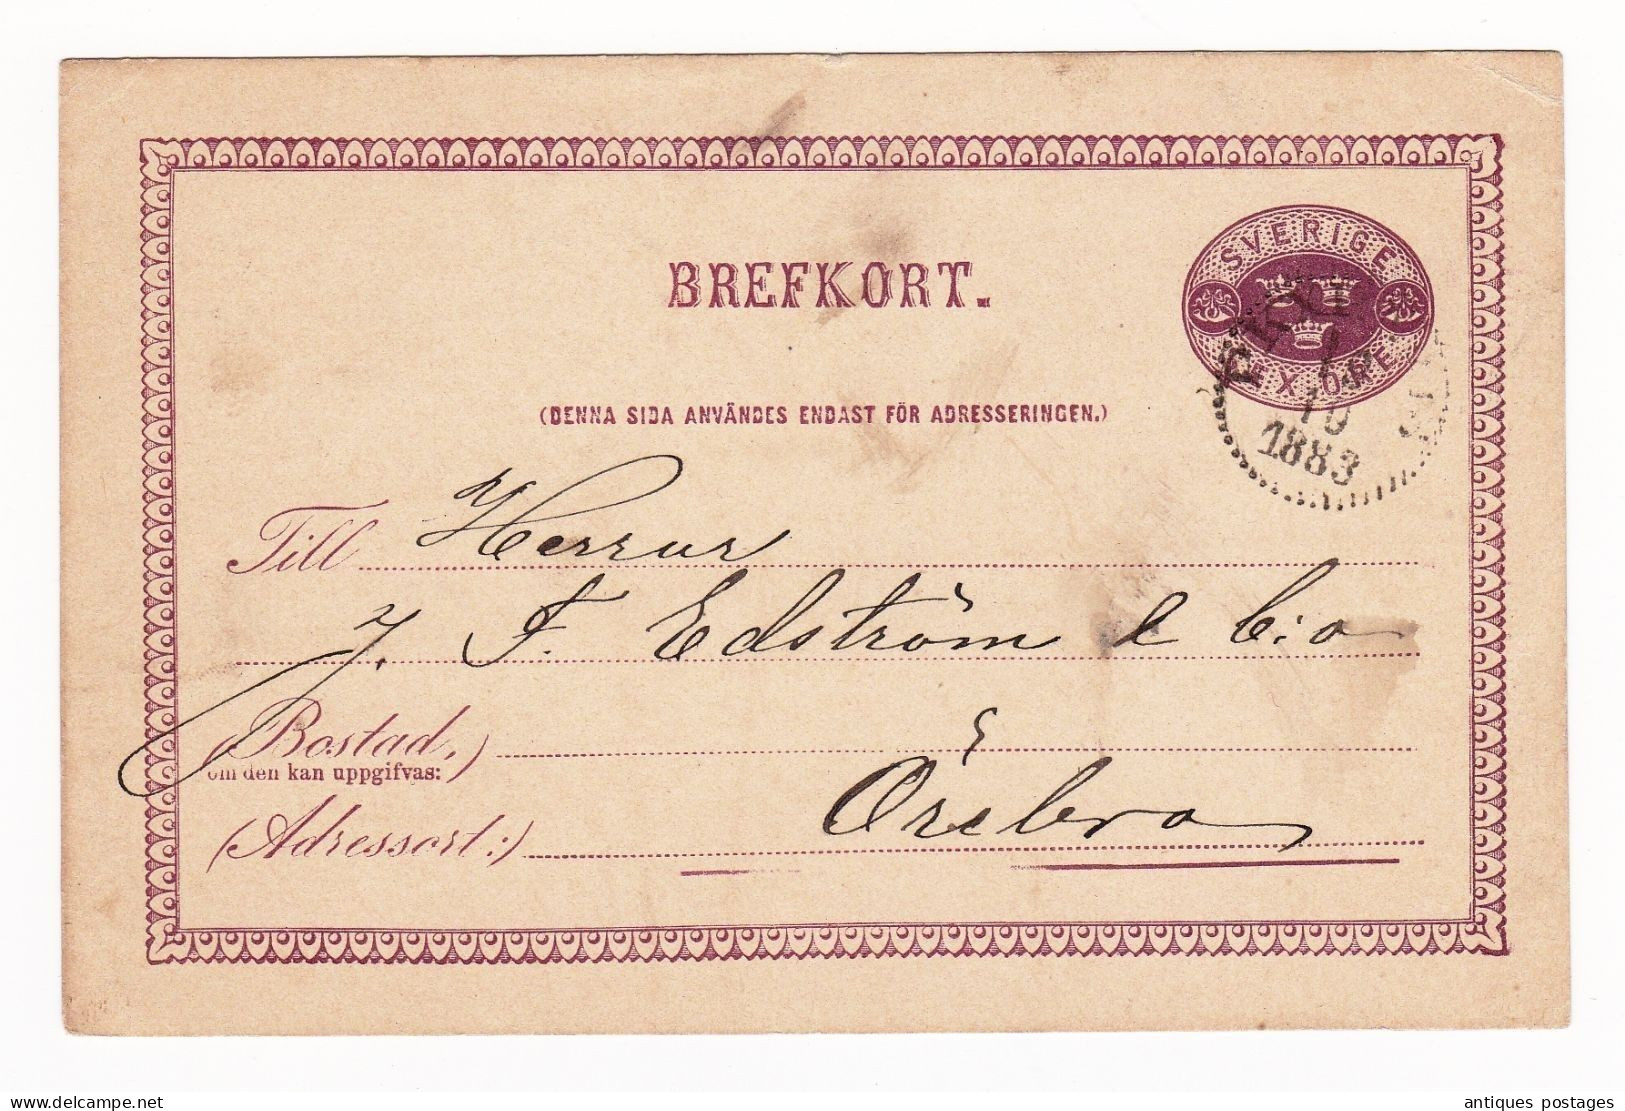 SVERIGE
BREFKORT.
SEX ÖRE
10
1883
(DENNA SIDA ANVÄNDES ENDAST FÖR ADRESSERINGEN.)
Till Herrar
J. F. Edström & C:o
(Bostad,)
om den kan uppgifvas:
Örebro
(Adressort:)
www.delcampe.net
antiques postages